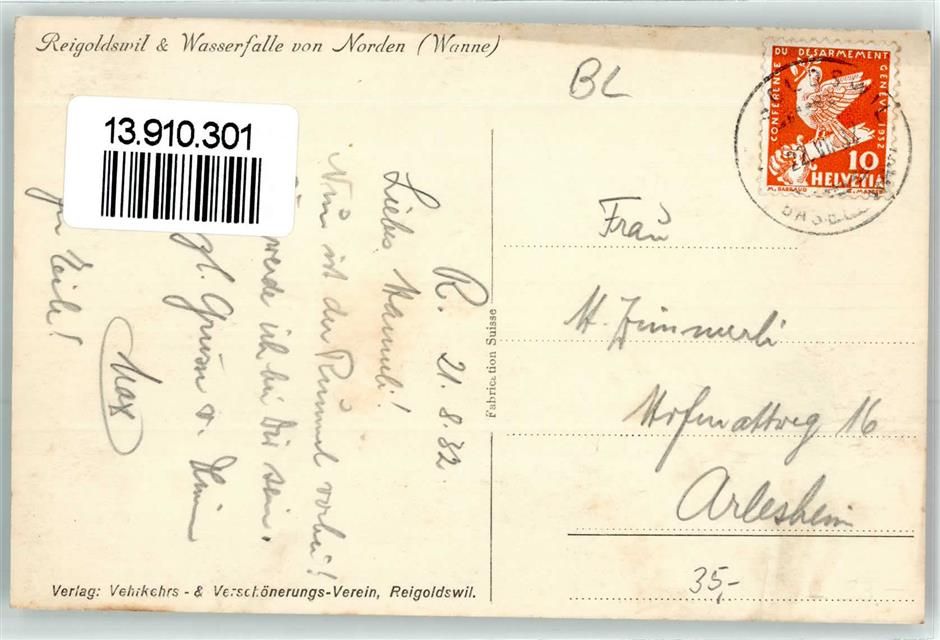 Reigoldswil & Wasserfalle von Norden (Wanne)
BL
13.910.301
CONFÉRENCE DU DÉSARMEMENT GENÈVE 1932
10
HELVETIA
M. BARRAUD
BASEL
R. 21.8.32.
Liebes Mammeli!
Nun ist der Rummel vorbei!
werde ich bei Dir sein.
Gruss v. Deim
Max
In Eile!
Fabrication Suisse
Frau
H. Zimmerli
Hofmattweg 16
Arlesheim
35,-
Verlag: Vehrkehrs - & Verschönerungs-Verein, Reigoldswil.